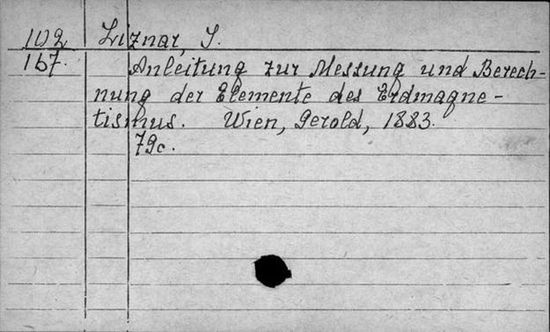 102 Liznar, J.
167. Anleitung zur Messung und Berech-
nung der Elemente des Erdmagne-
tismus. Wien, Gerold, 1883.
79c.